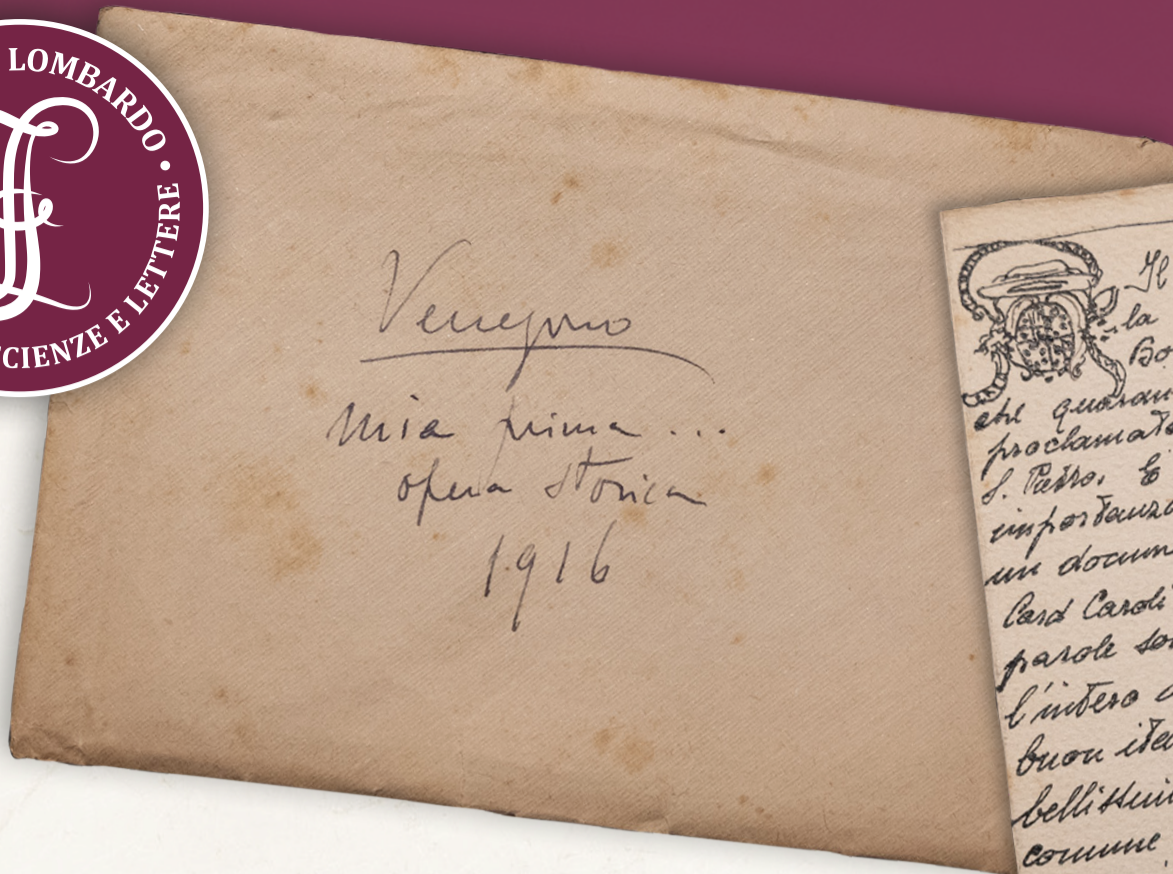 LOMBARDO •
SCIENZE E LETTERE
Venegono
mia prima ...
opera storica
1916
Il
la
Bo
che quaran
proclamato
S. Pietro. E
importanza
un docum
Card Caroli
parole so
l'intero
buon ita
bellissim
comune